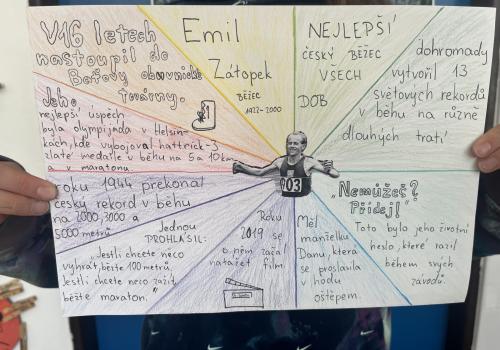 V16 letech
nastoupil do
Baťovy obuvnické
továrny.
Emil
Zátopek
BĚŽEC
1922-2000
NEJLEPŠÍ
ČESKÝ BĚŽEC
VSECH
DOB
dohromady
vytvořil 13
světových rekordů
v běhu na různě
dlouhých tratí
Jeho
nejlepší úspěch
byla olympijáda v Helsin-
kách, kde vybojoval hattrick-3
zlaté medaile v běhu na 5 a 10 km
a v maratonu.
203
roku 1944 překonal
český rekord v běhu
na 2000, 3000 a
5000 metrů
Jednou
PROHLÁSIL:
"Jestli chcete něco
vyhrát, běžte 100 metrů.
Jestli chcete něco zažít,
běžte maraton."
Roku
2019 se
o něm začal
natáčet film
Měl
manželku
Danu, která
se proslavila
v hodu
oštěpem.
"Nemůžeš?
Přidej!"
Toto bylo jeho životní
heslo, které razil
během svých
závodů.